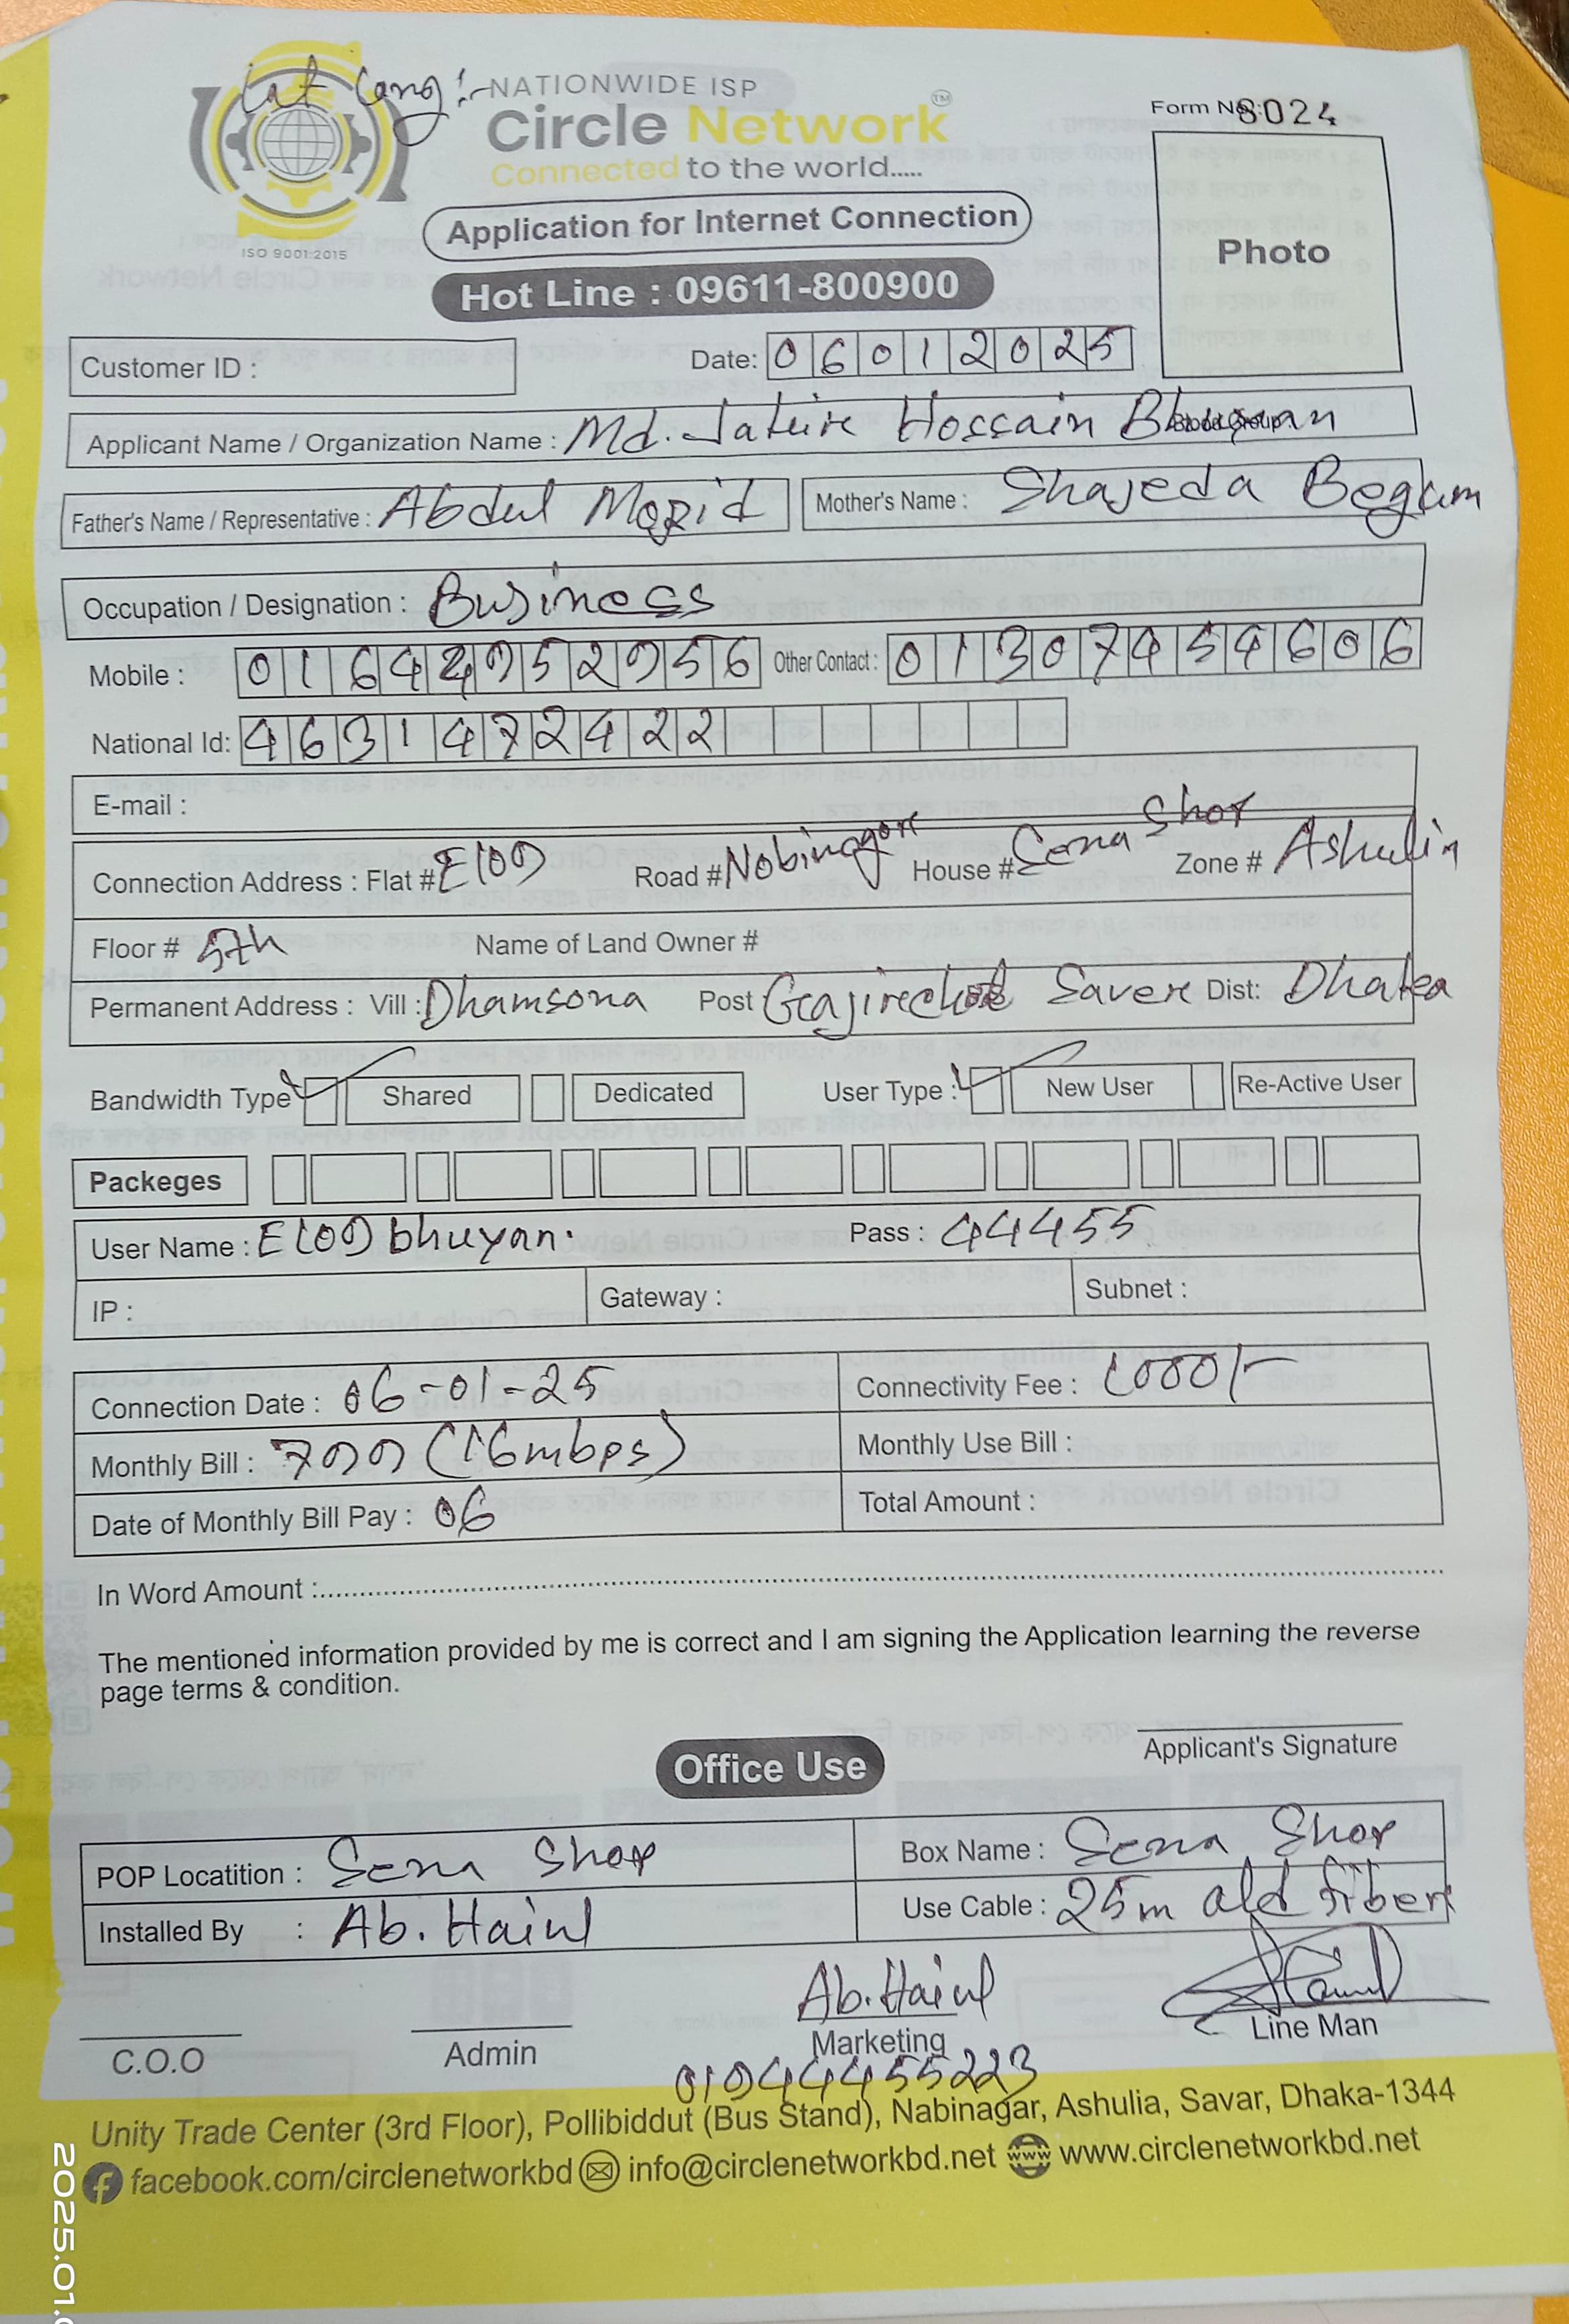 Lat Long :-
NATIONWIDE ISP
Circle Network™
Connected to the world.....
ISO 9001:2015
Form No: 8024
Photo
Application for Internet Connection
Hot Line : 09611-800900
Customer ID :
Date: 06012025
Applicant Name / Organization Name : Md. Hossain
Father's Name / Representative : Abdul Mozid Mother's Name : Shajeda Begum
Occupation / Designation : Business
Mobile : Other Contact : 01307454606
National Id: 4631472422
E-mail :
Connection Address : Flat # E109 Road # House # Sena Shop Zone # Ashulia
Floor # 5th Name of Land Owner #
Permanent Address : Vill : Dhamsona Post Saver Dist: Dhaka
Bandwidth Type Shared Dedicated User Type : New User Re-Active User
Packeges
User Name : E109bhuyan. Pass : 44455
IP : Gateway : Subnet :
Connection Date : 06-01-25 Connectivity Fee : 1000/-
Monthly Bill : 799 (16mbps) Monthly Use Bill :
Date of Monthly Bill Pay : 06 Total Amount :
In Word Amount :
The mentioned information provided by me is correct and I am signing the Application learning the reverse
page terms & condition.
Applicant's Signature
Office Use
POP Locatition : Sena Shop Box Name : Sena Shop
Installed By : Ab. Haiul Use Cable : 25m old fiber
Ab. Haiul
C.O.O Admin Marketing Line Man
01944455223
Unity Trade Center (3rd Floor), Pollibiddut (Bus Stand), Nabinagar, Ashulia, Savar, Dhaka-1344
facebook.com/circlenetworkbd info@circlenetworkbd.net www.circlenetworkbd.net
2025.01.